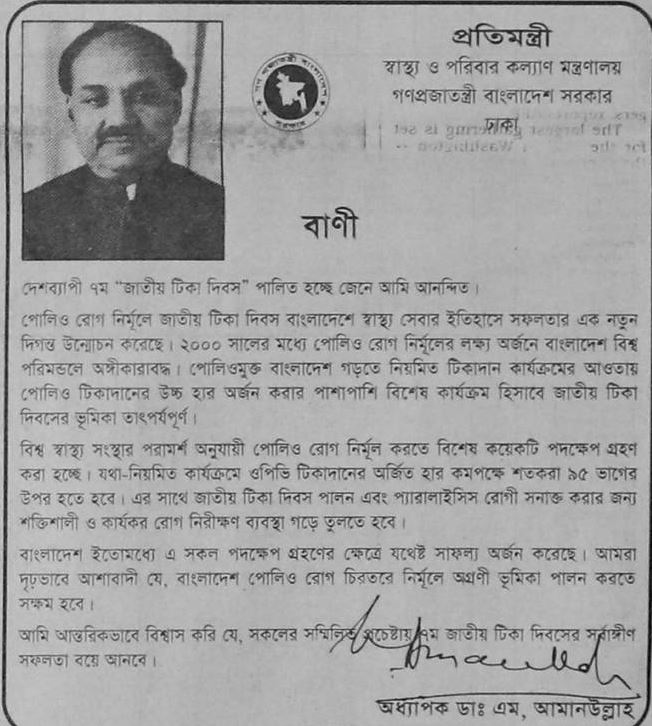 প্রতিমন্ত্রী
স্বাস্থ্য ও পরিবার কল্যাণ মন্ত্রণালয়
গণপ্রজাতন্ত্রী বাংলাদেশ সরকার
ঢাকা
বাণী
দেশব্যাপী ৭ম “জাতীয় টিকা দিবস” পালিত হচ্ছে জেনে আমি আনন্দিত।
পোলিও রোগ নির্মূলে জাতীয় টিকা দিবস বাংলাদেশে স্বাস্থ্য সেবার ইতিহাসে সফলতার এক নতুন
দিগন্ত উন্মোচন করেছে। ২০০০ সালের মধ্যে পোলিও রোগ নির্মূলের লক্ষ্য অর্জনে বাংলাদেশ বিশ্ব
পরিমন্ডলে অঙ্গীকারাবদ্ধ। পোলিওমুক্ত বাংলাদেশ গড়তে নিয়মিত টিকাদান কার্যক্রমের আওতায়
পোলিও টিকাদানের উচ্চ হার অর্জন করার পাশাপাশি বিশেষ কার্যক্রম হিসাবে জাতীয় টিকা
দিবসের ভূমিকা তাৎপর্যপূর্ণ।
বিশ্ব স্বাস্থ্য সংস্থার পরামর্শ অনুযায়ী পোলিও রোগ নির্মূল করতে বিশেষ কয়েকটি পদক্ষেপ গ্রহণ
করা হচ্ছে। যথা-নিয়মিত কার্যক্রমে ওপিভি টিকাদানের অর্জিত হার কমপক্ষে শতকরা ৯৫ ভাগের
উপর হতে হবে। এর সাথে জাতীয় টিকা দিবস পালন এবং প্যারালাইসিস রোগী সনাক্ত করার জন্য
শক্তিশালী ও কার্যকর রোগ নিরীক্ষণ ব্যবস্থা গড়ে তুলতে হবে।
বাংলাদেশ ইতোমধ্যে এ সকল পদক্ষেপ গ্রহণের ক্ষেত্রে যথেষ্ট সাফল্য অর্জন করেছে। আমরা
দৃঢ়ভাবে আশাবাদী যে, বাংলাদেশ পোলিও রোগ চিরতরে নির্মূলে অগ্রণী ভূমিকা পালন করতে
সক্ষম হবে।
আমি আন্তরিকভাবে বিশ্বাস করি যে, সকলের সম্মিলিত প্রচেষ্টায় ৭ম জাতীয় টিকা দিবসের সর্বাঙ্গীণ
সফলতা বয়ে আনবে।
অধ্যাপক ডাঃ এম, আমানউল্লাহ